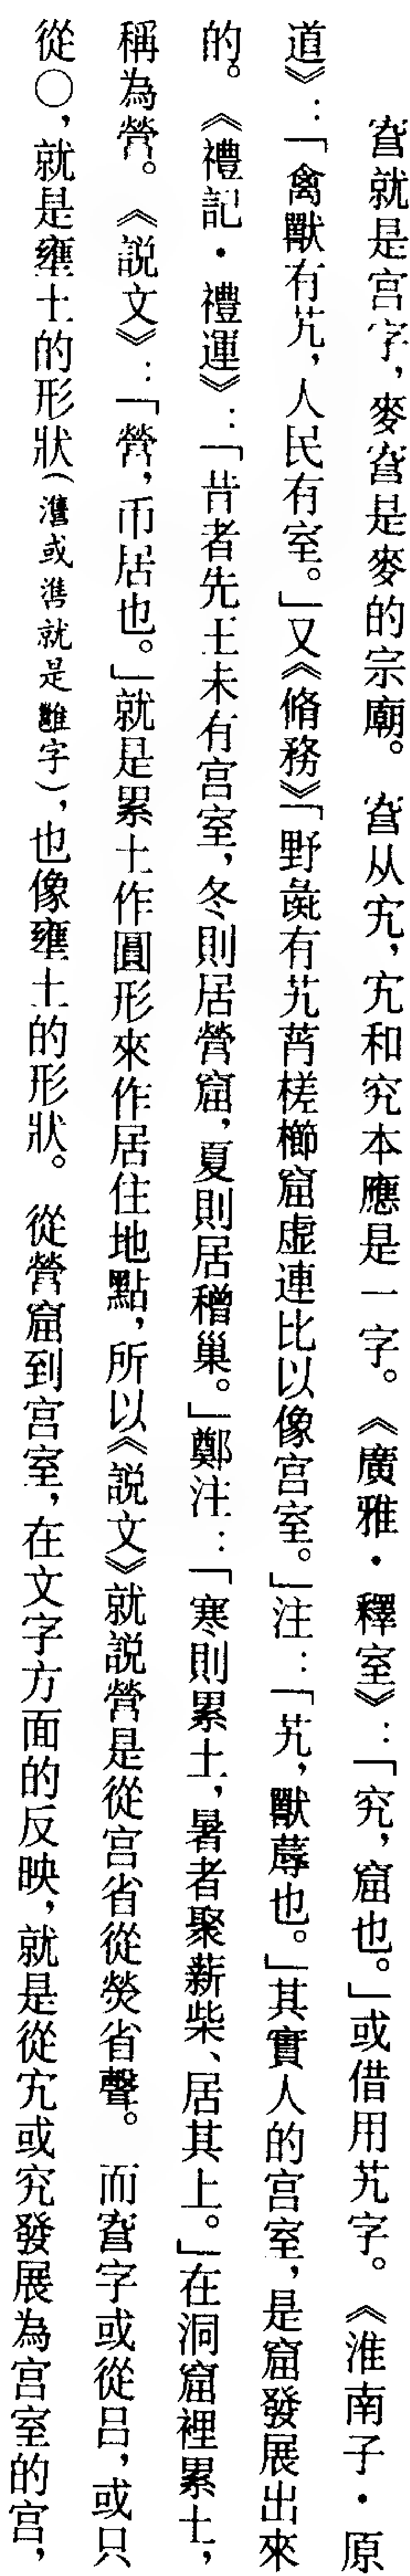 就是宫字，麥是麥的宗廟。从宄，宄和究本應是一字。《廣雅·釋室》：「究，窟也。」或借用艽字。《淮南子·原
道》：「禽獸有艽，人民有室。」又《脩務》「野彘有艽莦槎櫛窟虚連比以像宫室。」注：「艽，獸蓐也。」其實人的宫室，是窟發展出來
的。《禮記·禮運》：「昔者先王未有宫室，冬則居營窟，夏則居橧巢。」鄭注：「寒則累土，暑者聚薪柴、居其上。」在洞窟裡累土，
稱為營。《説文》：「營，帀居也。」就是累土作圓形來作居住地點，所以《説文》就説營是從宫省從熒省聲。而字或從吕，或只
從〇，就是壅土的形狀（或就是雝字），也像壅土的形狀。從營窟到宫室，在文字方面的反映，就是從宄或究發展為宫室的宫，